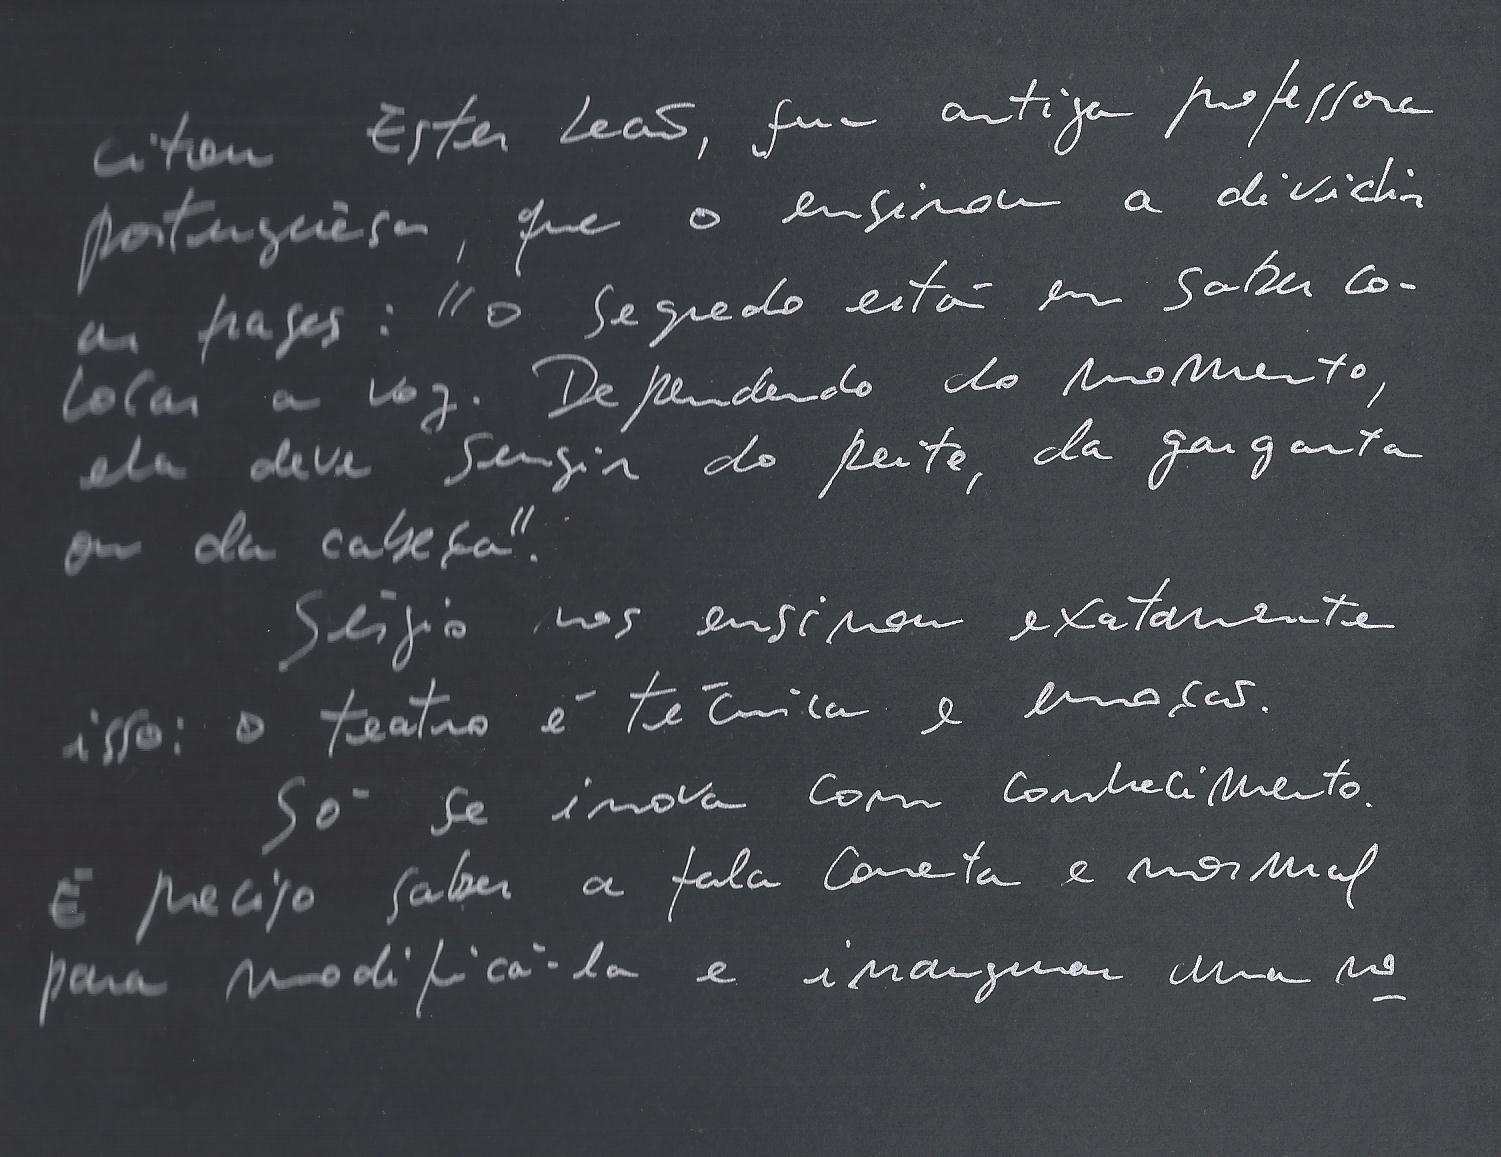 citou Ester Leão, sua antiga professora
portuguêsa, que o ensinou a dividir
as frases: "o segredo está em saber co-
locar a voz. Dependendo do momento,
ela deve surgir do peito, da garganta
ou da cabeça".
Sérgio nos ensinou exatamente
isso: o teatro é técnica e emoção.
Só se inova com conhecimento.
É preciso saber a fala correta e normal
para modificá-la e inaugurar uma no